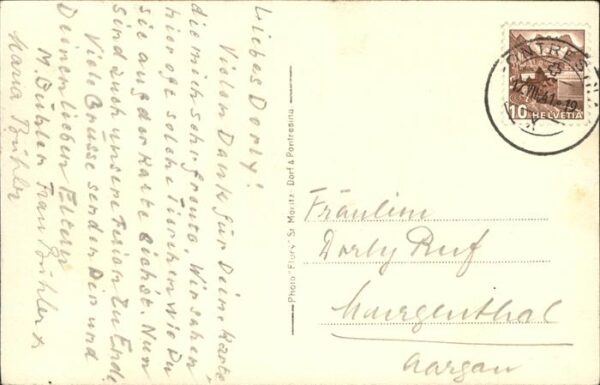 Liebes Dorly!
Vielen Dank für Deine Karte
die mich sehr freute. Wir sahen
hier oft solche Tierchen wie Du
sie auf der Karte siehst. Nun
sind auch unsere Ferien zu Ende
Viele Grüsse senden Dir und
Deinen lieben Eltern
M. Bühler Frau Bühler
Maria Bühler
Photo "Flury" St. Moritz-Dorf & Pontresina
PONTRESINA
41-19
10 HELVETIA
Fräulein
Dorly Ruf
Murgenthal
Aargau